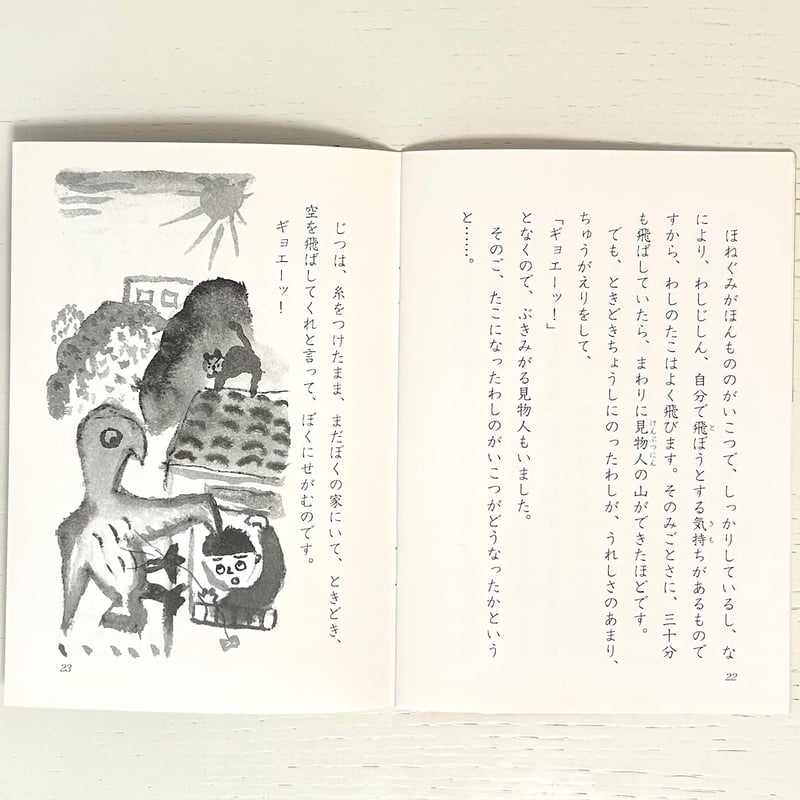 ほねぐみがほんもののがいこつで、しっかりしているし、な
により、わしじしん、自分で飛ぼうとする気持ちがあるもので
すから、わしのたこはよく飛びます。そのみごとさに、三十分
も飛ばしていたら、まわりに見物人の山ができたほどです。
でも、ときどきちょうしにのったわしが、うれしさのあまり、
ちゅうがえりをして、
「ギョエーッ！」
となくので、ぶきみがる見物人もいました。
そのご、たこになったわしのがいこつがどうなったかという
と……。
22
じつは、糸をつけたまま、まだぼくの家にいて、ときどき、
空を飛ばしてくれと言って、ぼくにせがむのです。
ギョエーッ！
23